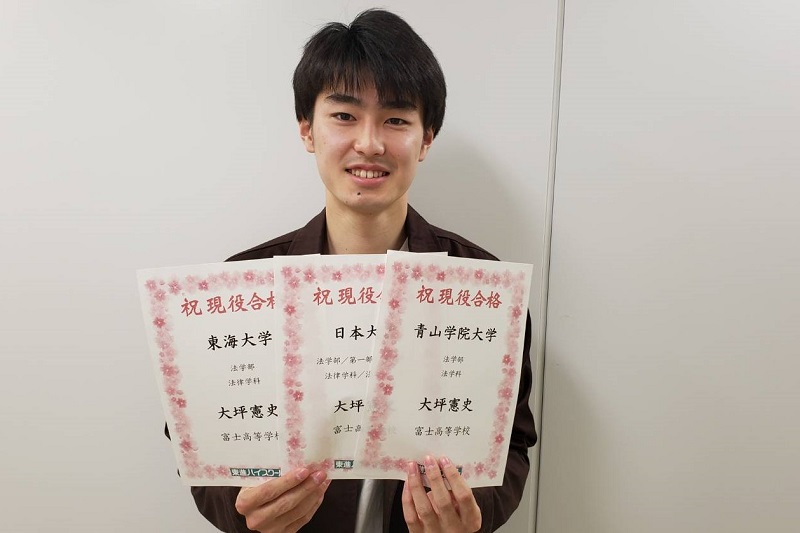 祝 現役合格
東海大学
法学部
法律学科
大坪憲史
富士高等学校
東進ハイスクール
祝 現役
日本大
法学部/第一部
法律学科/法
大坪
富士高
東進
祝 現役合格
青山学院大学
法学部
法学科
大坪憲史
富士高等学校